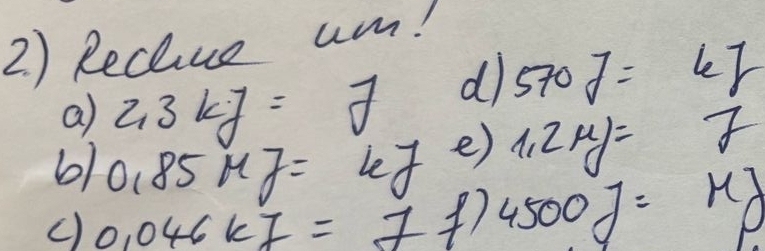 2.) Rechne um!
a) 2,3 kJ = J
d) 570 J = kJ
b) 0,85 MJ = kJ
e) 1,2 MJ = J
c) 0,046 kJ = J
f) 4500 J = MJ